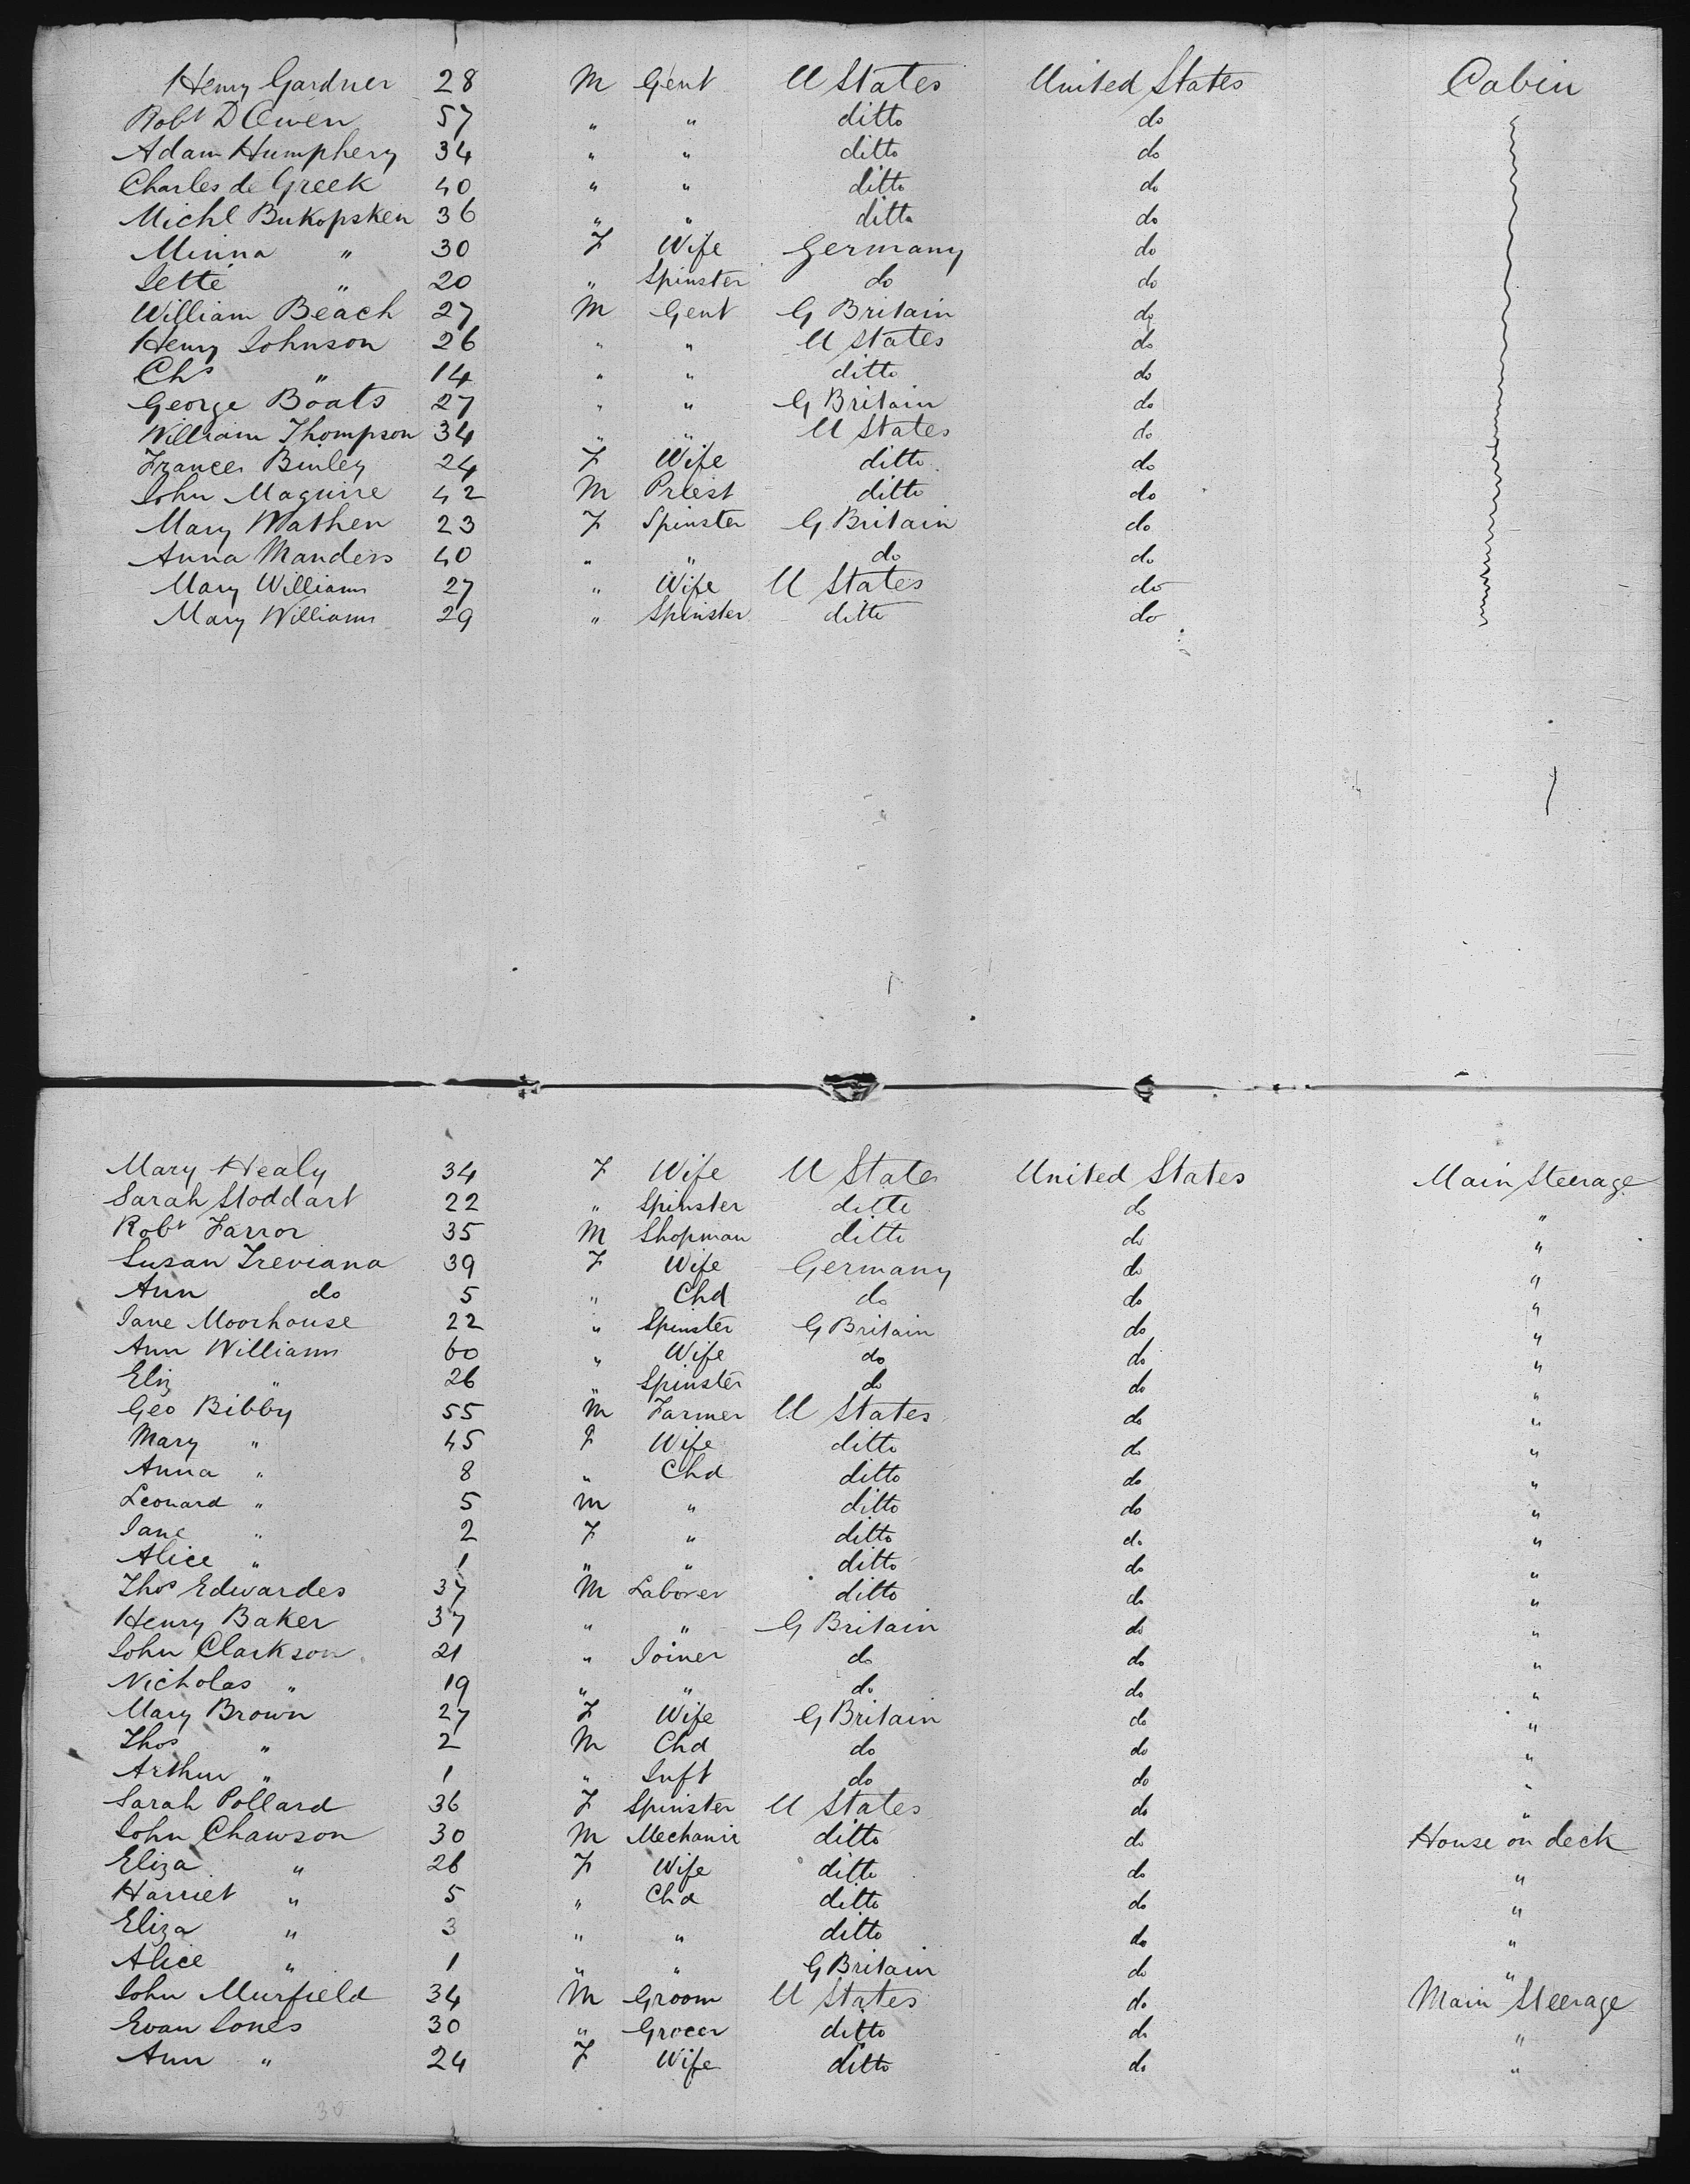 Henry Gardner 28 M Gent U States United States Cabin
Robt D Owen 57 " " ditto do
Adam Humphery 34 " " ditto do
Charles de Greek 40 " " ditto do
Michl Bukopsken 36 " " ditto do
Minna " 30 F Wife Germany do
Jette " 20 " Spinster do do
William Beach 27 M Gent G Britain do
Henry Johnson 26 " " U States do
Chs " 14 " " ditto do
George Boats 27 " " G Britain do
William Thompson 34 " " U States do
Frances Binley 24 F Wife ditto do
John Maguire 42 M Priest ditto do
Mary Mathen 23 F Spinster G Britain do
Anna Manders 40 " " do do
Mary Williams 27 " Wife U States do
Mary Williams 29 " Spinster ditto do
Mary Healy 34 F Wife U States United States Main Steerage
Sarah Stoddart 22 " Spinster ditto do "
Robt Farror 35 M Shopman ditto do "
Susan Treviana 39 F Wife Germany do "
Ann do 5 " Chd do do "
Jane Moorhouse 22 " Spinster G Britain do "
Ann Williams 60 " Wife do do "
Eliz " 26 " Spinster do do "
Geo Bibby 55 M Farmer U States do "
Mary " 45 F Wife ditto do "
Anna " 8 " Chd ditto do "
Leonard " 5 M " ditto do "
Jane " 2 F " ditto do "
Alice " 1 " " ditto do "
Thos Edwardes 37 M Laborer ditto do "
Henry Baker 37 " " G Britain do "
John Clarkson 21 " Joiner do do "
Nicholas " 19 " " do do "
Mary Brown 27 F Wife G Britain do "
Thos " 2 M Chd do do "
Arthur " 1 " Inft do do "
Sarah Pollard 36 F Spinster U States do "
John Chawson 30 M Mechanic ditto do House on deck
Eliza " 26 F Wife ditto do "
Harriet " 5 " Chd ditto do "
Eliza " 3 " " ditto do "
Alice " 1 " " G Britain do "
John Murfield 34 M Groom U States do Main Steerage
Evan Jones 30 " Grocer ditto do "
Ann " 24 F Wife ditto do "
30